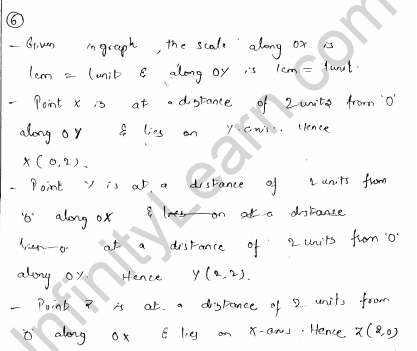 6
- Given in graph, the scale along OX is
1cm = 1unit & along OY is 1cm = 1unit.
- Point X is at a distance of 2 units from 'O'
along OY & lies on Y-axis. Hence
X(0,2).
- Point Y is at a distance of 2 units from
'O' along OX & lies on at a distance
lies o at a distance of 2 units from 'O'
along OY. Hence Y(2,2).
- Point Z is at a distance of 2 units from
'O' along OX & lies on X-axis. Hence Z(2,0)
InfinityLearn.com